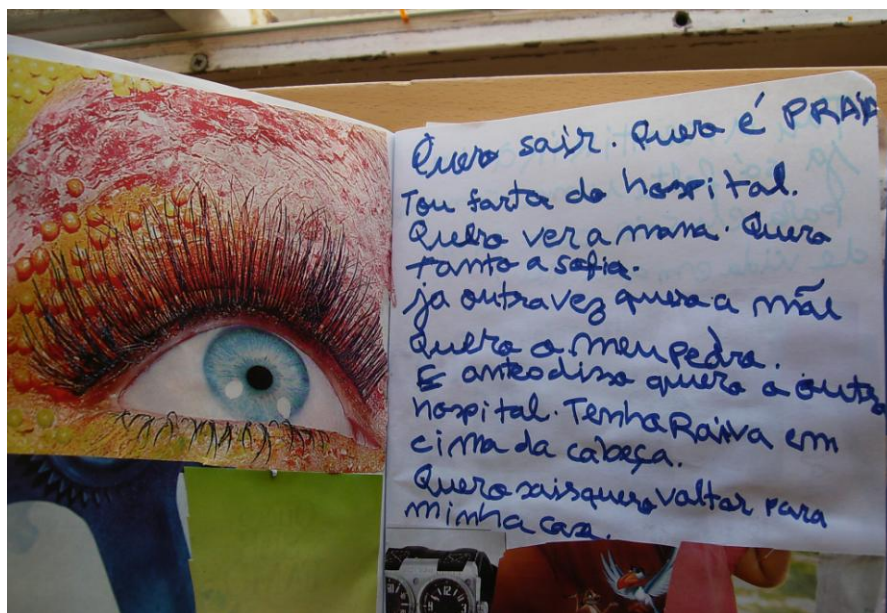 Quero sair. Quero é PRAIA
Tou farta do hospital.
Quero ver a mana. Quero
tanto a sofia.
ja outra vez quero a mãe
Quero o meu pedro.
E antes disso quero o outro
hospital. Tenho Raiva em
cima da cabeça.
Quero sair quero voltar para
minha casa.